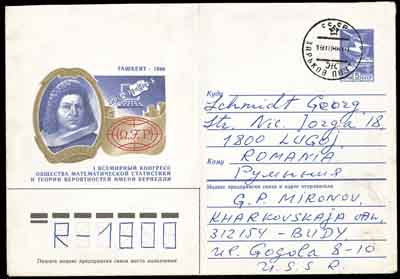 ТАШКЕНТ - 1986
(Ω, F, P)
I ВСЕМИРНЫЙ КОНГРЕСС
ОБЩЕСТВА МАТЕМАТИЧЕСКОЙ СТАТИСТИКИ
И ТЕОРИИ ВЕРОЯТНОСТЕЙ ИМЕНИ БЕРНУЛЛИ
R-1800
Пишите индекс предприятия связи места назначения
СССР
ХАРЬКОВ
Куда
Schmidt Georg
Str. Nic. Jorga 18,
1800 LUGOJ
Кому
ROMANIA
Румыния
Индекс предприятия связи и адрес отправителя
G. P. MIRONOV,
KHARKOVSKAJA
312154 - BUDY
ul. Gogola 8-10
U.S.S.R